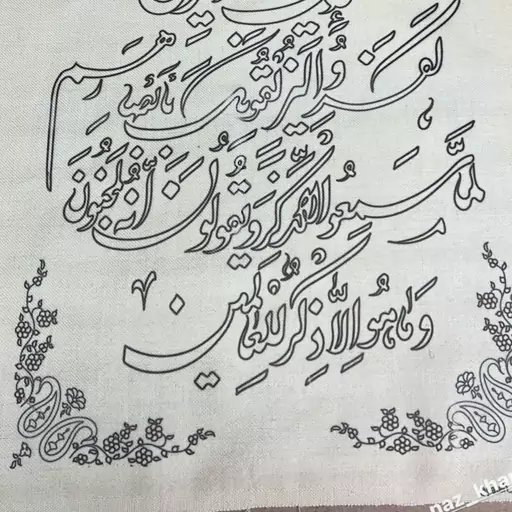 كَفَرُوا لَيُزْلِقُونَكَ بِأَبْصَارِهِمْ
لَمَّا سَمِعُوا الذِّكْرَ وَيَقُولُونَ إِنَّهُ لَمَجْنُونٌ
وَمَا هُوَ إِلَّا ذِكْرٌ لِلْعَالَمِينَ
naz_kha